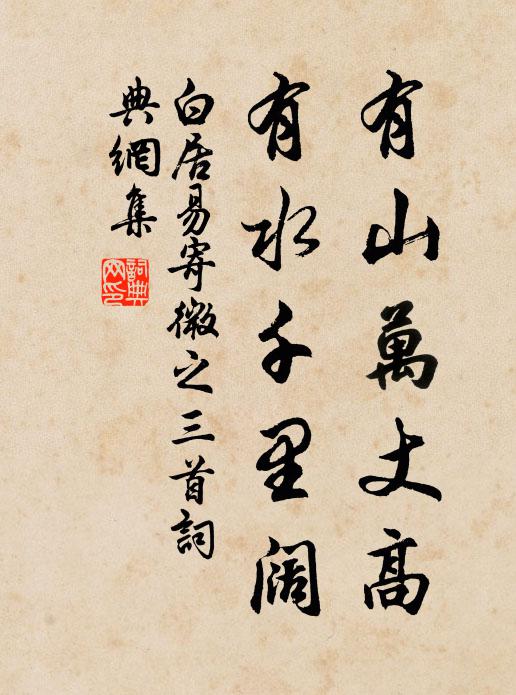 有山萬丈高
有水千里阔
白居易寄微之三首詞
典網集
詞典
网印